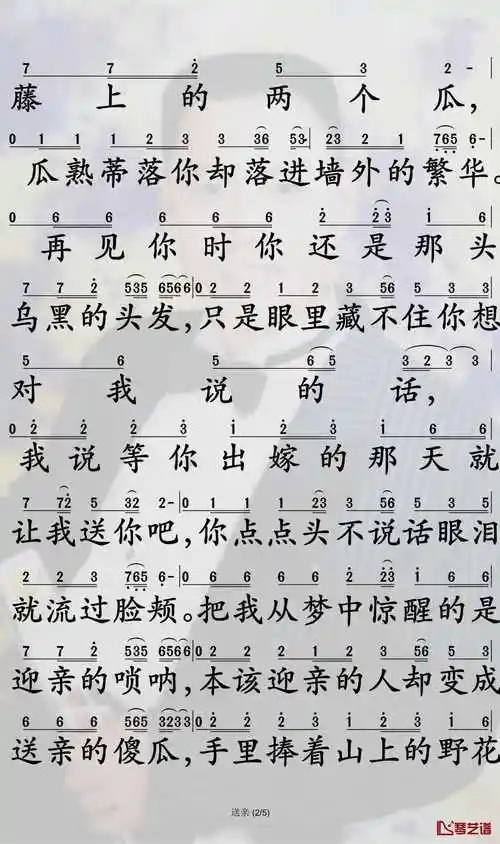 7 7 2 5 3 2 -
藤上的两个瓜，
0 1 1 1 2 3 3 36 53· 23 2 1 765 6·
瓜熟蒂落你却落进墙外的繁华。
0 6 6 6 6 6 2 23 i 6
再见你时你还是那头
7 7 2 535 6566 0 2 2 1 2 3 56 5 3
乌黑的头发，只是眼里藏不住你想
5 6 5 65 3 2 3 3
对我说的话，
0 2 2 2 2 i 2 3 i 6 6
我说等你出嫁的那天就
7 72 5 32 2- 0 1 1 1 23 3 56 5 3 5
让我送你吧，你点点头不说话眼泪
2 2 3 765 6· 0 6 6 6 6 2 23 i 6 6
就流过脸颊。把我从梦中惊醒的是
7 7 2 535 6566 0 2 2 1 2 3 56 5 3
迎亲的唢呐，本该迎亲的人却变成
6 6 6 565 3233 0 2 2 2 2 i 2 3 i 6 6
送亲的傻瓜，手里捧着山上的野花
送亲 (2/5)
琴艺谱